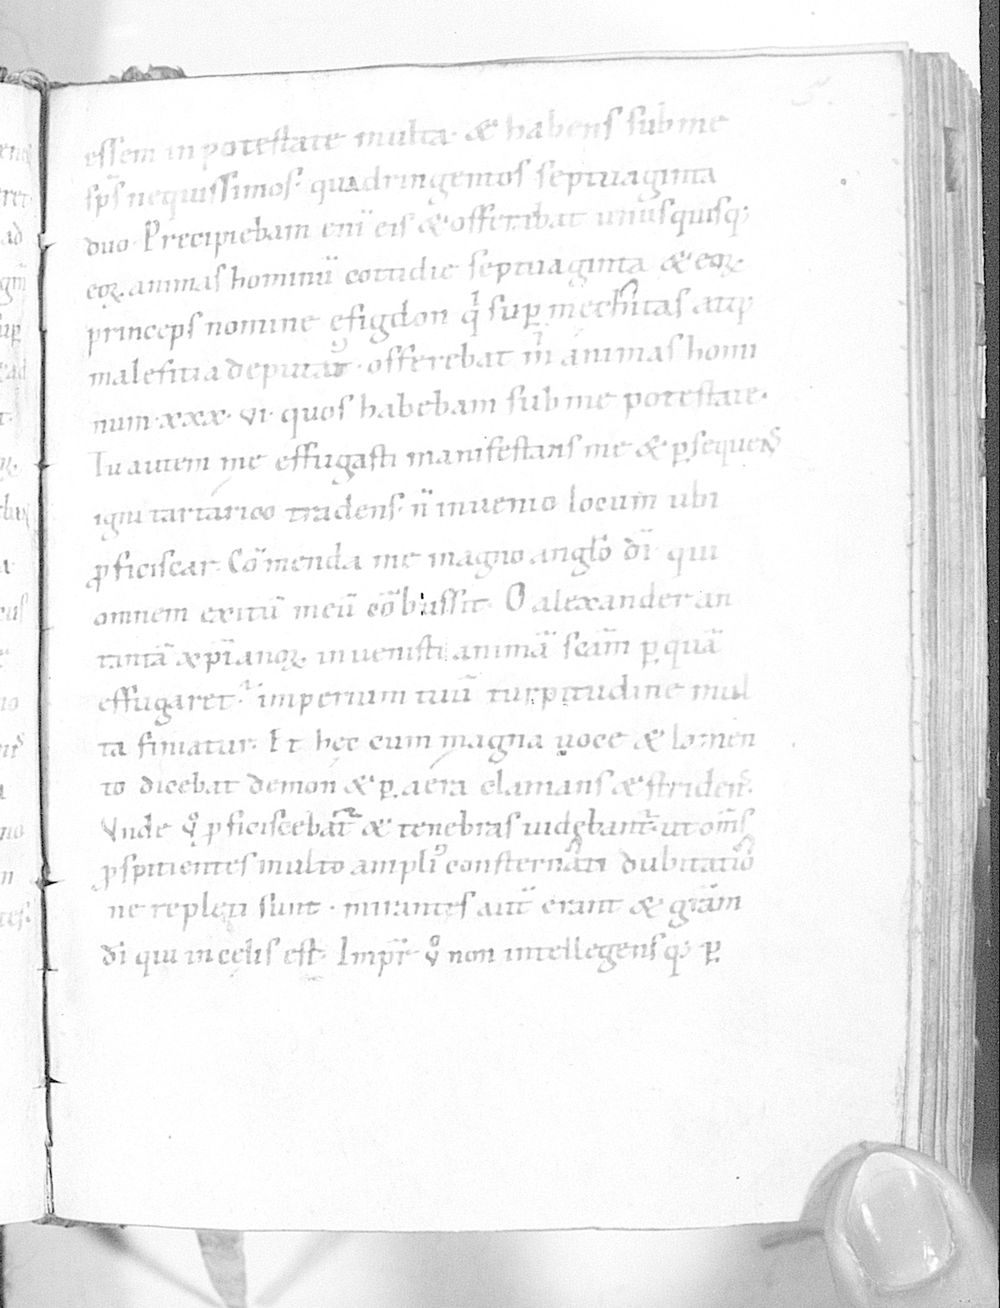 5.
essem in potestate multa· & habens sub me
sp̄s nequissimos· quadringentos septuaginta
duo· Precipiebam enī eis & offerebat unusquisq;
eoꝝ animas hominū cottidie septuaginta & eoꝝ
princeps nomine efigdon q̄ sup me
malefitia deputat᷑· offerebat m̄ animas homi
num· xxx· vi· quos habebam sub me potestate·
Tu autem me effugasti manifestans me & ꝑsequens
igni tartarico tradens· n̄ invenio locum ubi
ꝓficiscar· Cōmenda me magno anglo dī· qui
omnem exitū meū cōbussit· O alexander an
tantā xp̄ianoꝝ invenisti animā scām ꝑ quā
effugaret᷑· imperium tuū turpitudine mul
ta finiatur· Et hęc cum magna voce & lamen
to dicebat demon & ꝑ aera clamans & stridens·
Vnde v̊ ꝓficiscebat᷑ & tenebras videbant᷑· ut om̄s
ꝓspitientes multo ampli᷒ consternati dubitatio
ne repleti sunt· mirantes aut̄ erant & grām
dī qui in cęlis est· Imꝑr̄ v̊ non intellegens q; ꝑ